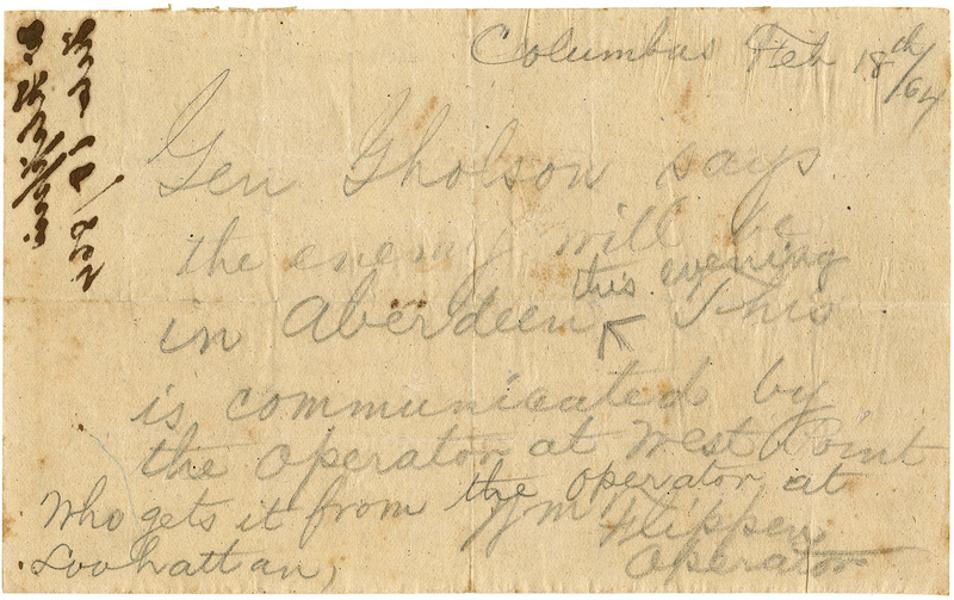 Columbus Feb 18th/64
Gen Gholson says
the enemy will be
in Aberdeen this evening This
is communicated by
the Operator at West Point
who gets it from the operator at
Loohattan,
Wm Flippen
Operator